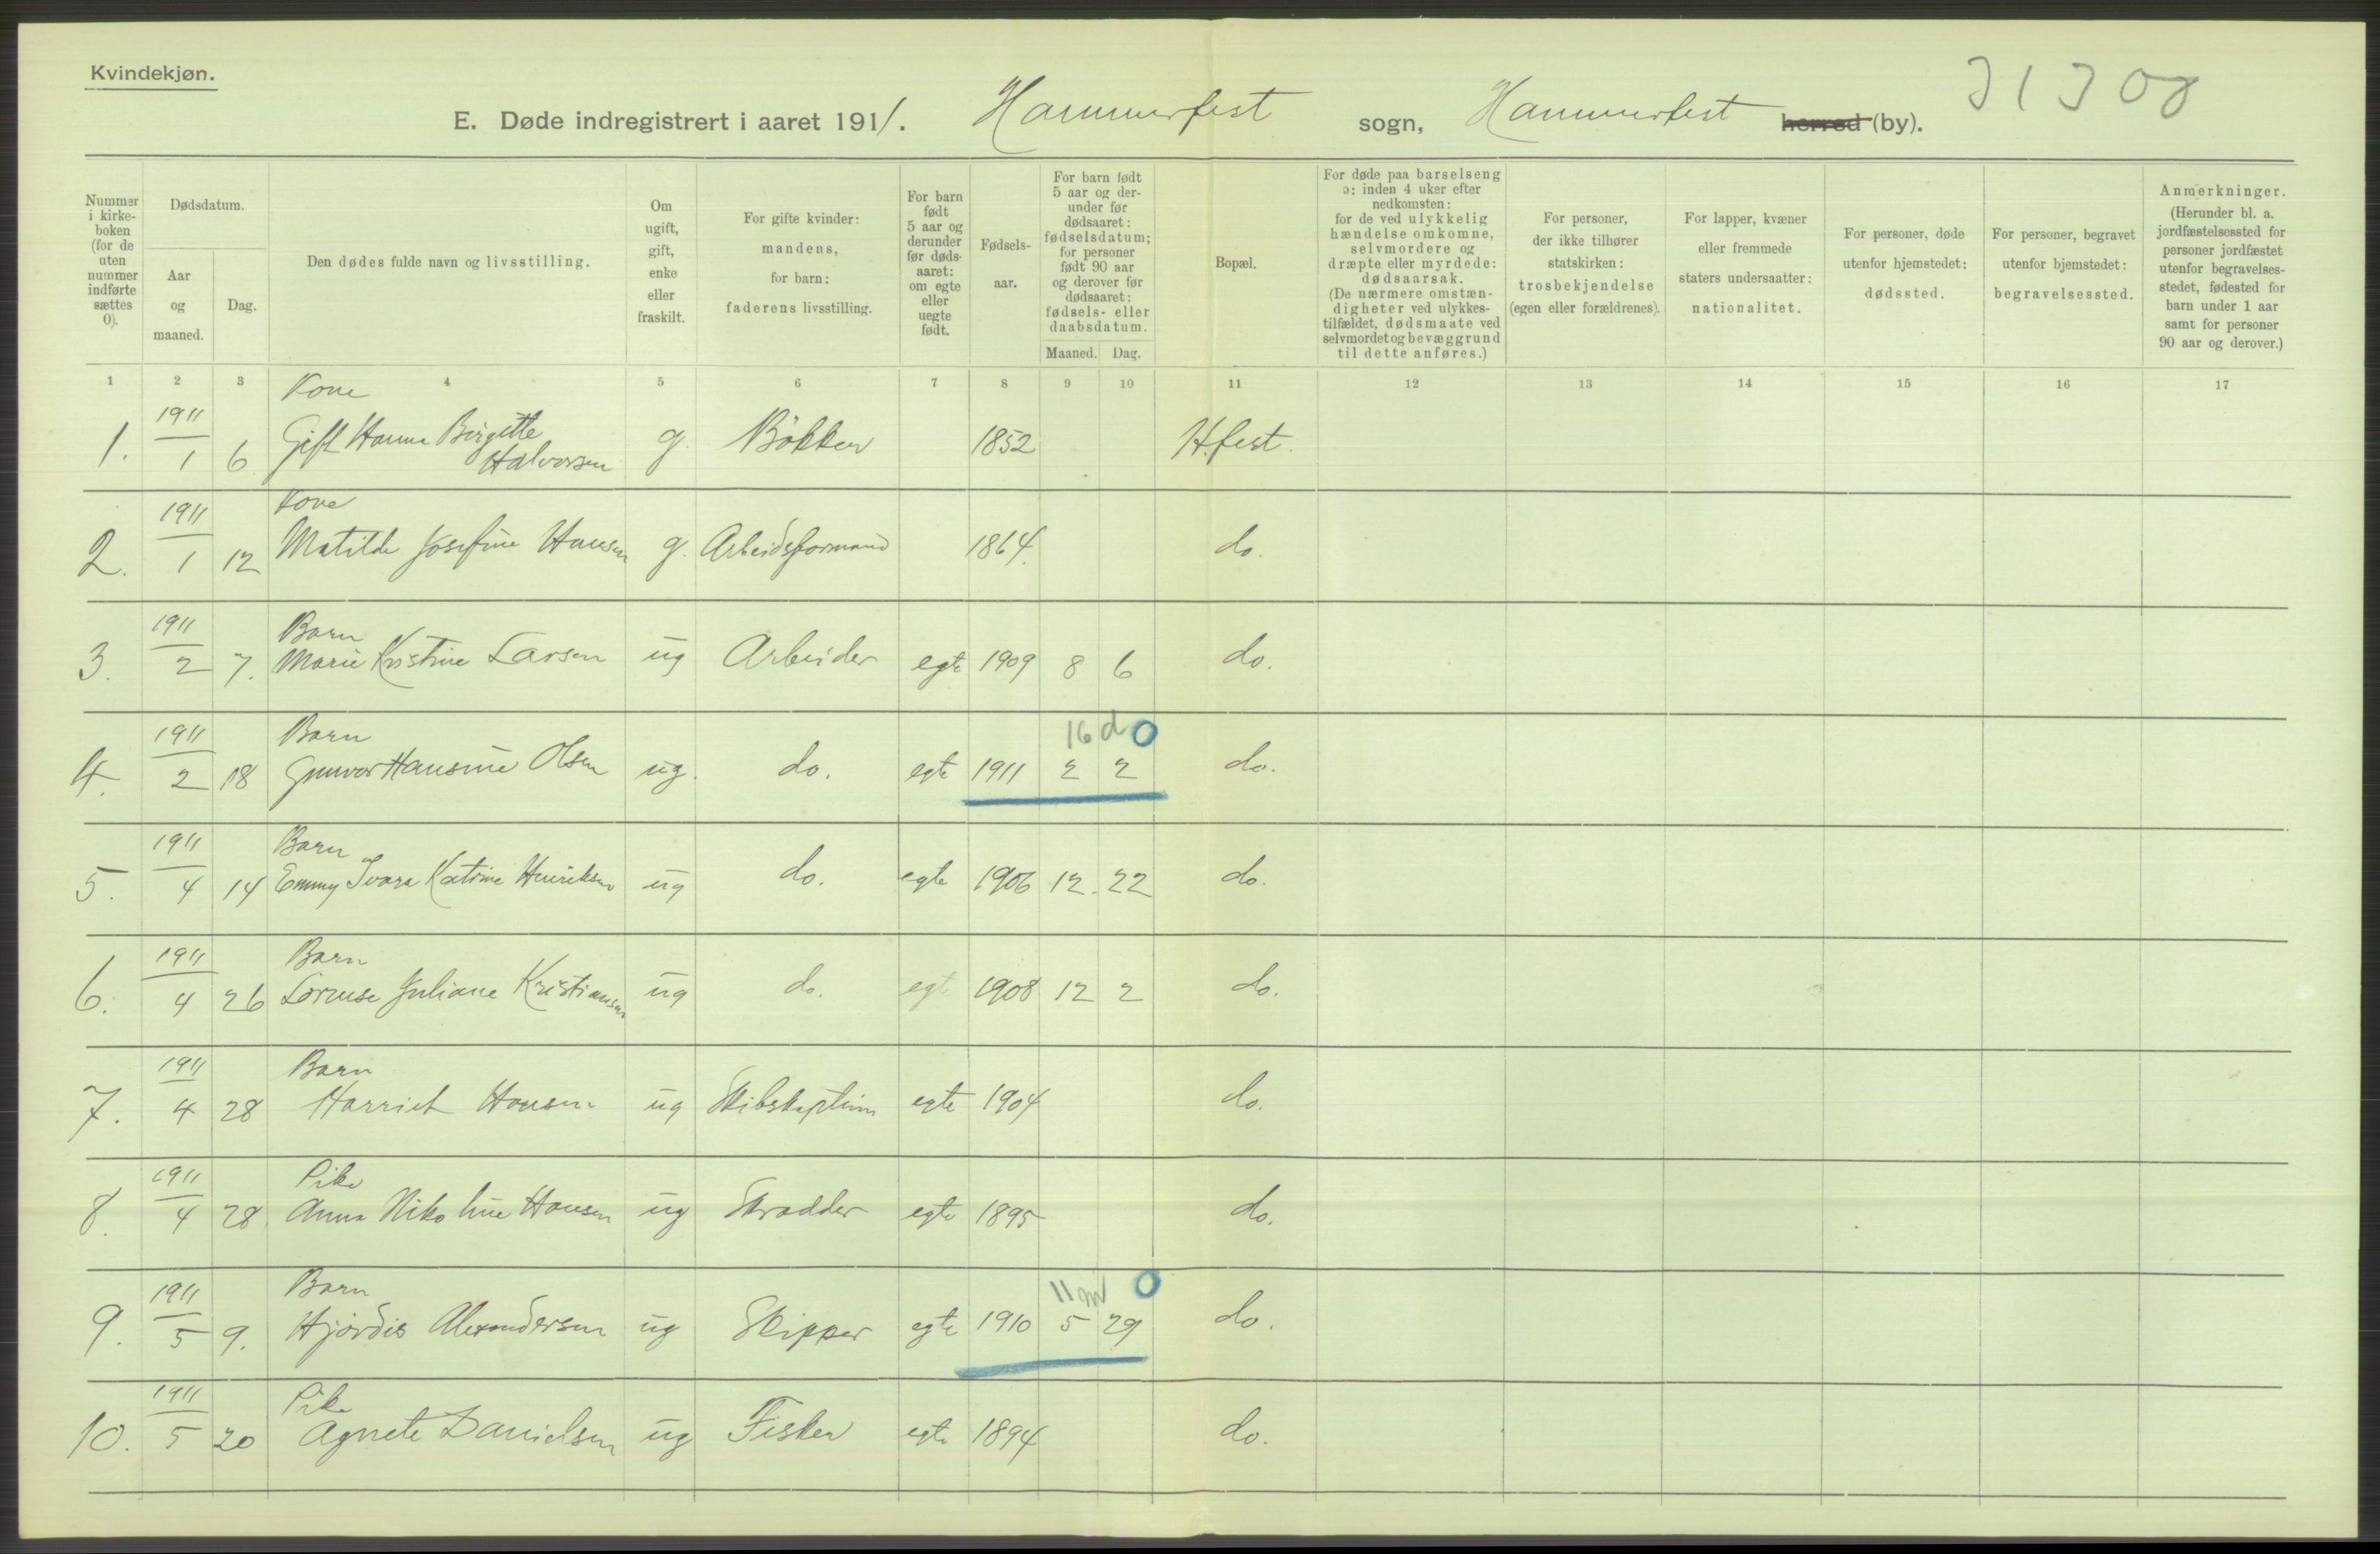 Kvindekjøn.
E. Døde indregistrert i aaret 1911. Hammerfest sogn, Hammerfest herred (by). 31308
Nummer i kirkeboken (for de uten nummer indførte sættes 0).
Dødsdatum.
Aar og maaned.
Dag.
Den dødes fulde navn og livsstilling.
Om ugift, gift, enke eller fraskilt.
For gifte kvinder: mandens, for barn: faderens livsstilling.
For barn født 5 aar og derunder før dødsaaret: om egte eller uegte født.
Fødselsaar.
For barn født 5 aar og derunder før dødsaaret: fødselsdatum; for personer født 90 aar og derover før dødsaaret: fødsels- eller daabsdatum.
Maaned. Dag.
Bopæl.
For døde paa barselseng ɔ: inden 4 uker efter nedkomsten: for de ved ulykkelig hændelse omkomne, selvmordere og dræpte eller myrdede: dødsaarsak. (De nærmere omstændigheter ved ulykkestilfældet, dødsmaate ved selvmordet og bevæggrund til dette anføres.)
For personer, der ikke tilhører statskirken: trosbekjendelse (egen eller forældrenes).
For lapper, kvæner eller fremmede staters undersaatter: nationalitet.
For personer, døde utenfor hjemstedet: dødssted.
For personer, begravet utenfor hjemstedet: begravelsessted.
Anmerkninger. (Herunder bl. a. jordfæstelsessted for personer jordfæstet utenfor begravelsesstedet, fødested for barn under 1 aar samt for personer 90 aar og derover.)
1 2 3 4 5 6 7 8 9 10 11 12 13 14 15 16 17
Kone
1. 1911 1 6 Gift Hanna Birgitte Halvorsen g. Bøkker 1852 H.fest.
Kone
2. 1911 1 12 Matilde Josefine Hansen g. Arbeidsformand 1864. do.
Barn
3. 1911 2 7. Marie Kristine Larsen ug Arbeider egte 1909 8 6 do.
Barn 16 d 0
4. 1911 2 18 Gunvor Hansine Olsen ug. do. egte 1911 2 2 do.
Barn
5. 1911 4 14 Emmy Ivara Katrine Henriksen ug do. egte 1906 12. 22 do.
Barn
6. 1911 4 26 Lorense Juliane Kristiansen ug do. egt 1908 12 2 do.
Barn
7. 1911 4 28 Harriet Hansen ug Skibskaptein egte 1904 do.
Pike
8. 1911 4 28 Anna Nikoline Hansen ug Skrædder egte 1895 do.
Barn 11 m 0
9. 1911 5 9. Hjørdis Alexandersen ug Skipper egte 1910 5 29 do.
Pike
10. 1911 5 20 Agnete Danielsen ug Fisker egte 1894 do.